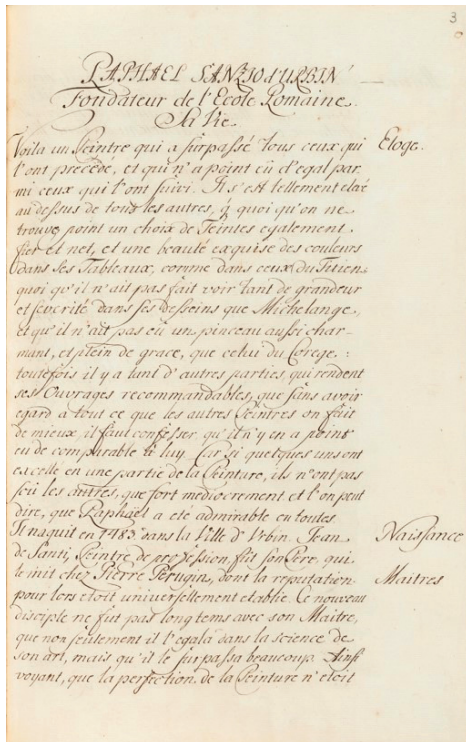 3
RAPHAEL SANZIO d'URBIN
Fondateur de l'Ecole Romaine.
Sa Vie.
Voila un Peintre qui a surpassé tous ceux qui
l'ont precedé, et qui n'a point eû d'egal par
mi ceux qui l'ont suivi. Il s'est tellement elevé
au dessus de tous les autres, q quoi qu'on ne
trouve point un choix de Teintes egalement
fier et net, et une beauté exquise des couleurs
dans ses Tableaux, comme dans ceux du Titien
quoi qu'il n'ait pas fait voir tant de grandeur
et severité dans ses desseins que Michelange,
et qu'il n'ait pas eû un pinceau aussi char-
mant, et plein de grace, que celui du Corege:
toutefois il y a tant d'autres parties, qui rendent
ses Ouvrages recommandables, que sans avoir
egard à tout ce que les autres Peintres on fait
de mieux, il faut confesser, qu'il n'y en a point
eu de comparable à luy. Car si quelques uns ont
excellé en une partie de la Peinture, ils n'ont pas
sçû les autres, que fort mediocrement et l'on peut
dire, que Raphael a eté admirable en toutes.
Il naquit en 1483. dans la Ville d'Urbin. Jean
de Santi, Peintre de profession, fût son Pere, qui
le mit chez Pierre Perugin, dont la reputation
pour lors etoit universellement etablie. Ce nouveau
disciple ne fut pas longtems avec son Maitre,
que non seulement il l'egala dans la science de
son art, mais qu'il le surpassa beaucoup. Ainsi
voyant, que la perfection de la Peinture n'etoit
Eloge.
Naissance
Maitres